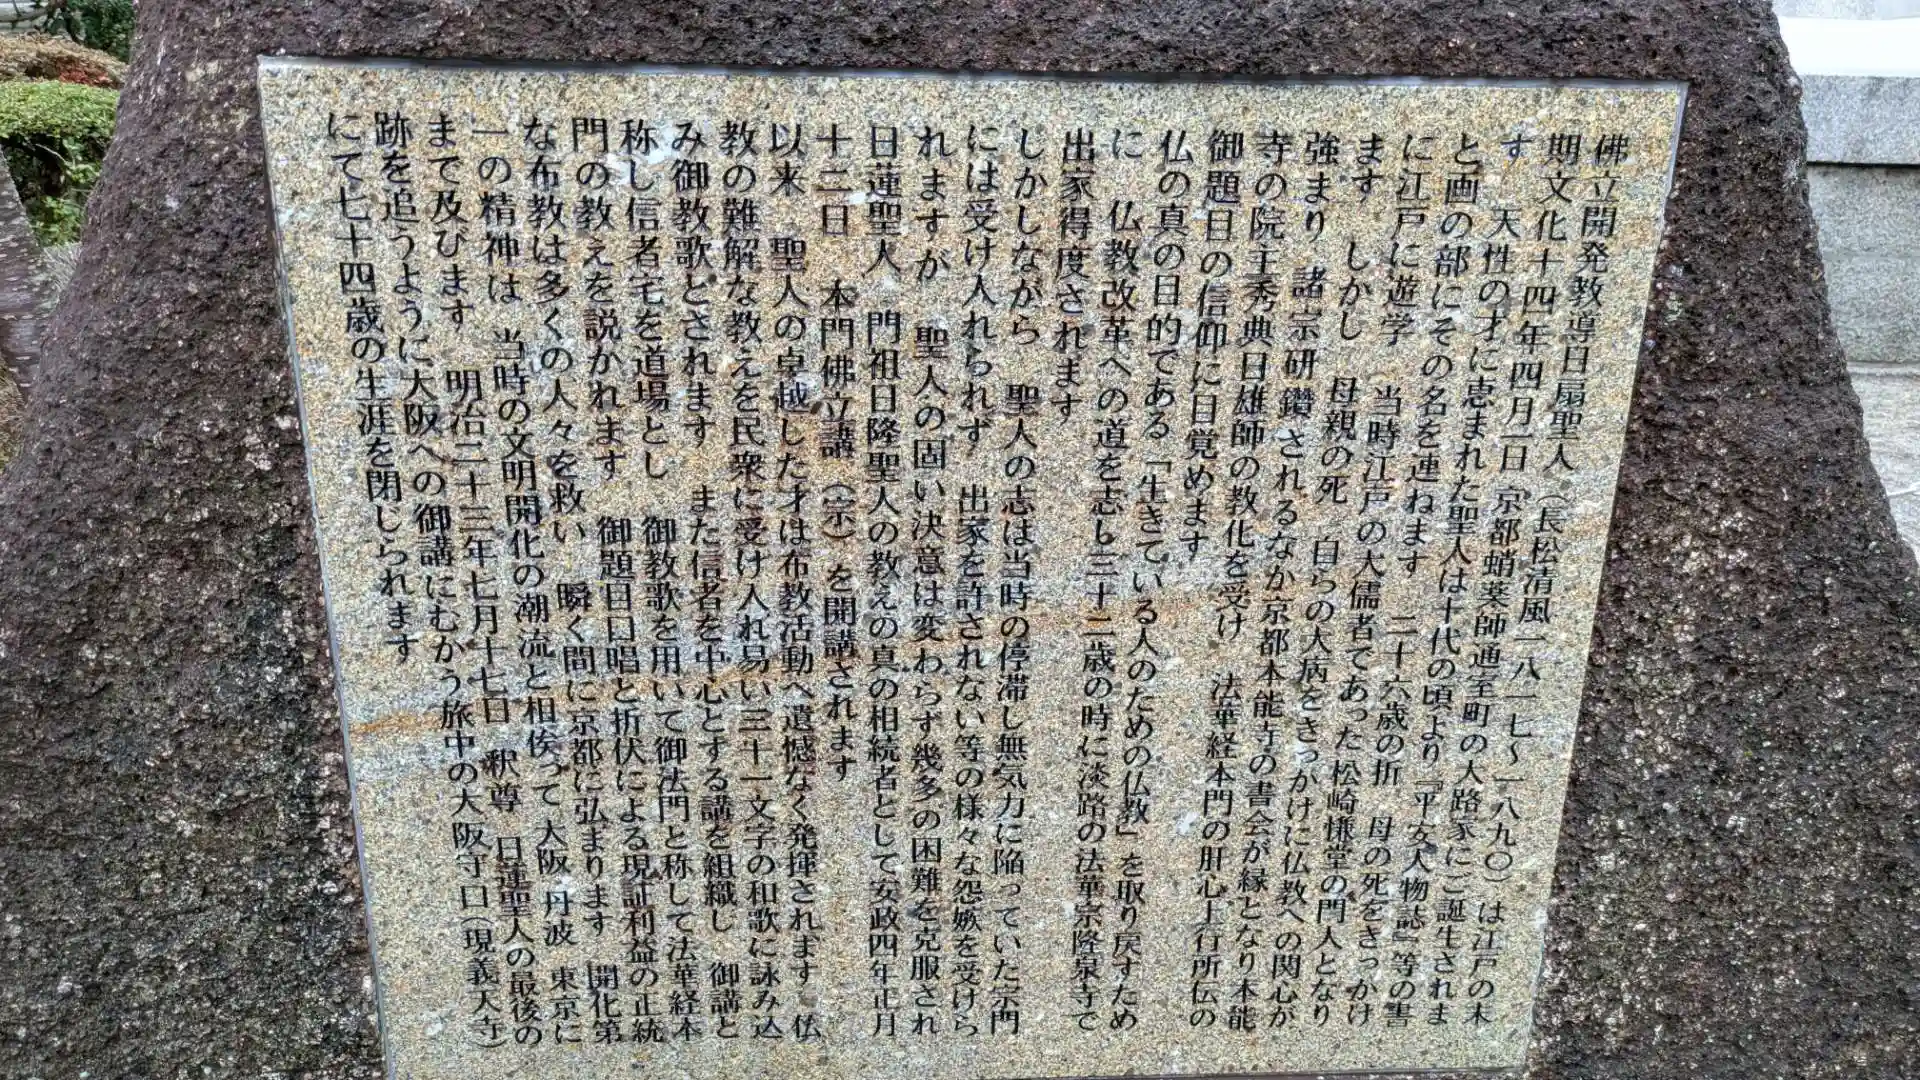 佛立開発教導日扇聖人（長松清風一八一七〜一八九〇）は江戸の末
期文化十四年四月一日 京都蛸薬師通室町の大路家にご誕生されま
す 天性の才に恵まれた聖人は十代の頃より『平安人物誌』等の書
と画の部にその名を連ねます 二十六歳の折 母の死をきっかけ
に江戸に遊学 当時江戸の大儒者であった松崎慊堂の門人となり
ます しかし 母親の死 自らの大病をきっかけに仏教への関心が
強まり 諸宗研鑽されるなか京都本能寺の書会が縁となり本能
寺の院主秀典日雄師の教化を受け 法華経本門の肝心上行所伝の
御題目の信仰に目覚めます
仏の真の目的である「生きている人のための仏教」を取り戻すため
に 仏教改革への道を志し三十二歳の時に淡路の法華宗隆泉寺で
出家得度されます
しかしながら 聖人の志は当時の停滞し無気力に陥っていた宗門
には受け入れられず 出家を許されない等の様々な怨嫉を受けら
れますが 聖人の固い決意は変わらず幾多の困難を克服され
日蓮聖人 門祖日隆聖人の教えの真の相続者として安政四年正月
十二日 本門佛立講（宗）を開講されます
以来 聖人の卓越した才は布教活動へ遺憾なく発揮されます 仏
教の難解な教えを民衆に受け入れ易い三十一文字の和歌に詠み込
み御教歌とされます また信者を中心とする講を組織し 御講と
称し信者宅を道場とし 御教歌を用いて御法門と称して法華経本
門の教えを説かれます 御題目口唱と折伏による現証利益の正統
な布教は多くの人々を救い 瞬く間に京都に弘まります 開化第
一の精神は 当時の文明開化の潮流と相俟って大阪 丹波 東京に
まで及びます 明治二十三年七月十七日 釈尊 日蓮聖人の最後の
跡を追うように大阪への御講にむかう旅中の大阪守口（現義天寺）
にて七十四歳の生涯を閉じられます